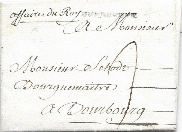 affaires du Roy
A Monsieur
Monsieur
Bourguemaître
à Dombourg